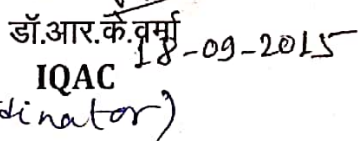 डॉ.आर.के.वर्मा
18-09-2015
IQAC
dinator)